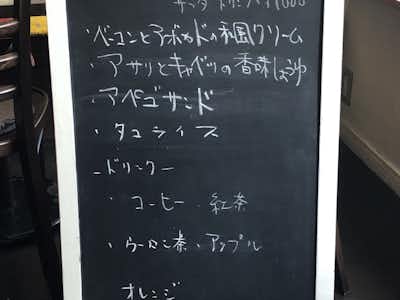 ・ベーコンとアボカドの和風クリーム
・アサリとキャベツの香味しょうゆ
・アベゴサンド
・タコライス
－ドリンク－
・コーヒー・紅茶
・ウーロン茶・アップル
オレンジ